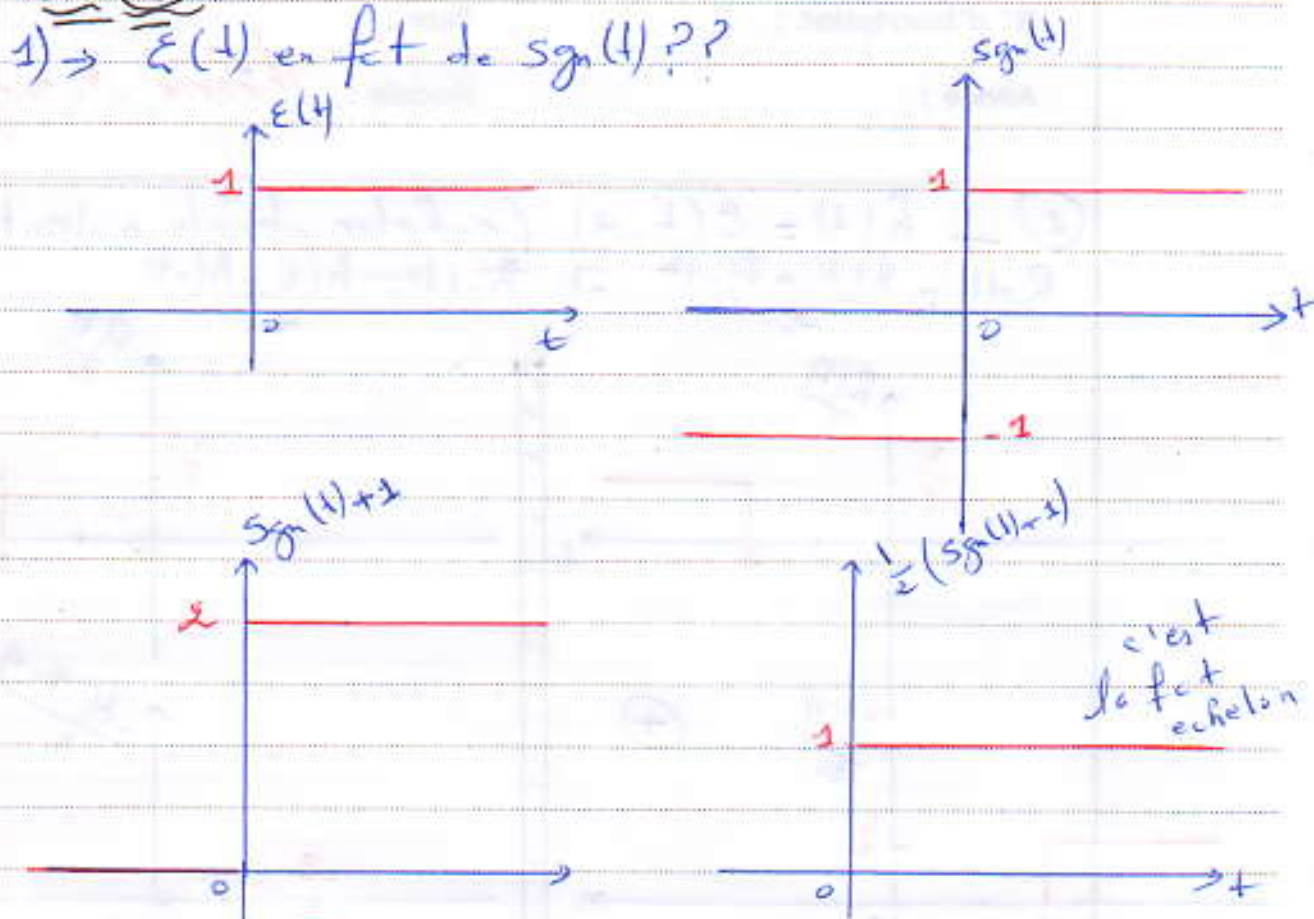 1) → ε(t) en fct de sgn(t) ??
ε(t)
1
0
t
sgn(t)
1
0
t
-1
sgn(t)+1
2
0
1/2 (sgn(t)+1)
1
c'est
la fct
echelon
0
t